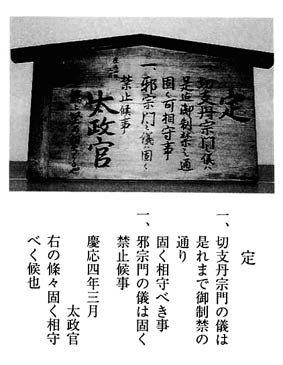 定
一、切支丹宗門之儀ハ
是迄御制禁之通
固く可相守事
一、邪宗門之儀ハ固く
禁止候事
太政官
定
一、切支丹宗門の儀は
是れまで御制禁の
通り
固く相守べき事
一、邪宗門の儀は固く
禁止候事
慶応四年三月
太政官
右の條々固く相守
べく候也